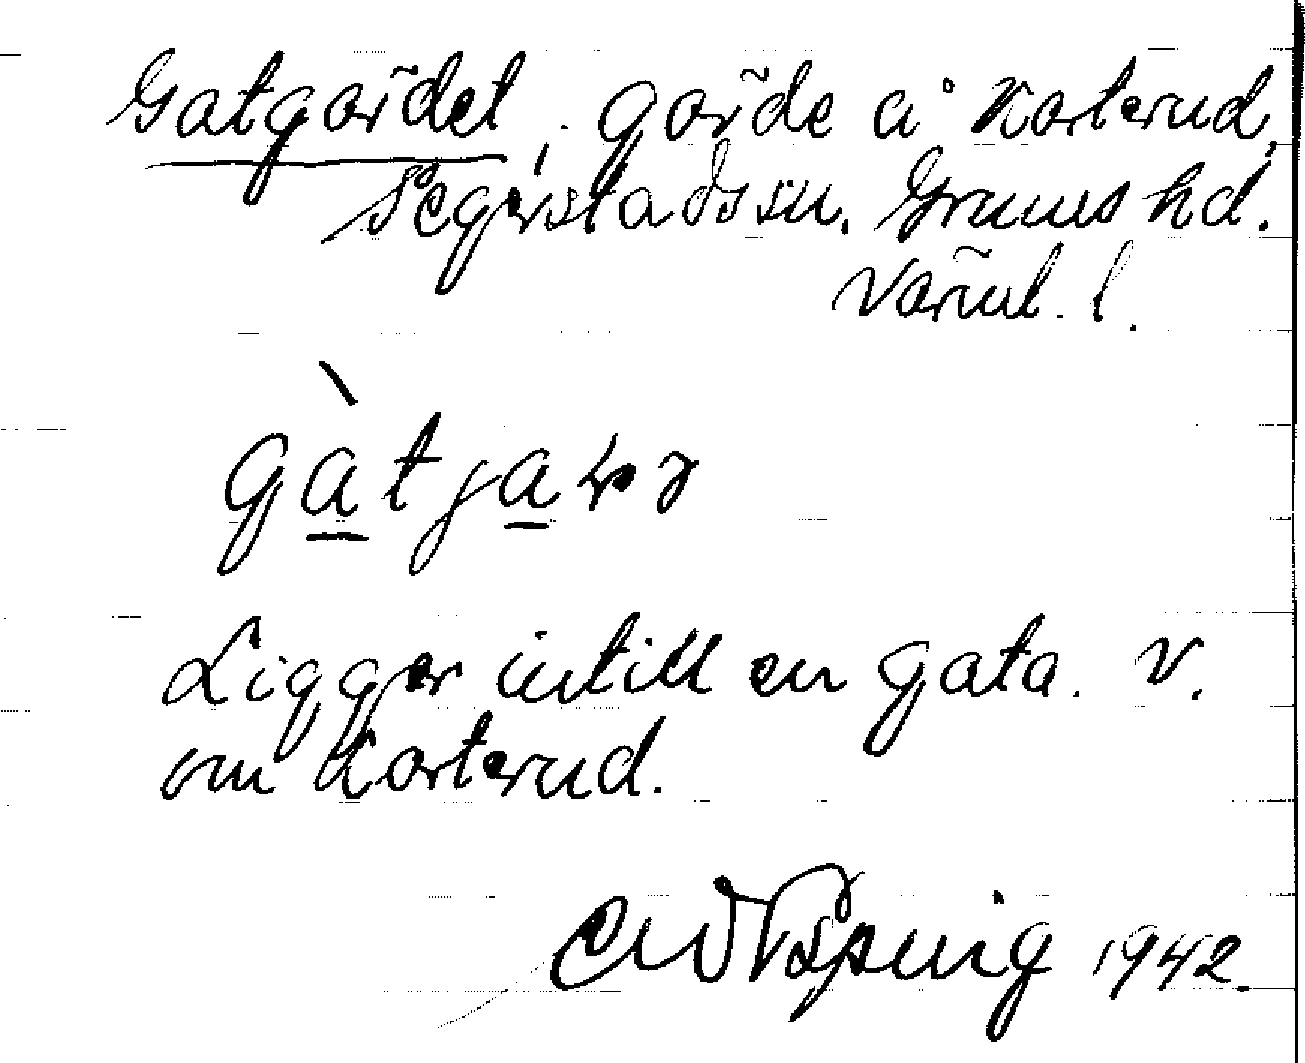 Gatgärdet, gärde å Korterud,
Segerstads sn. Grums hd.
Värml. l.
Ligger intill en gata. V.
om Korterud.
1942.